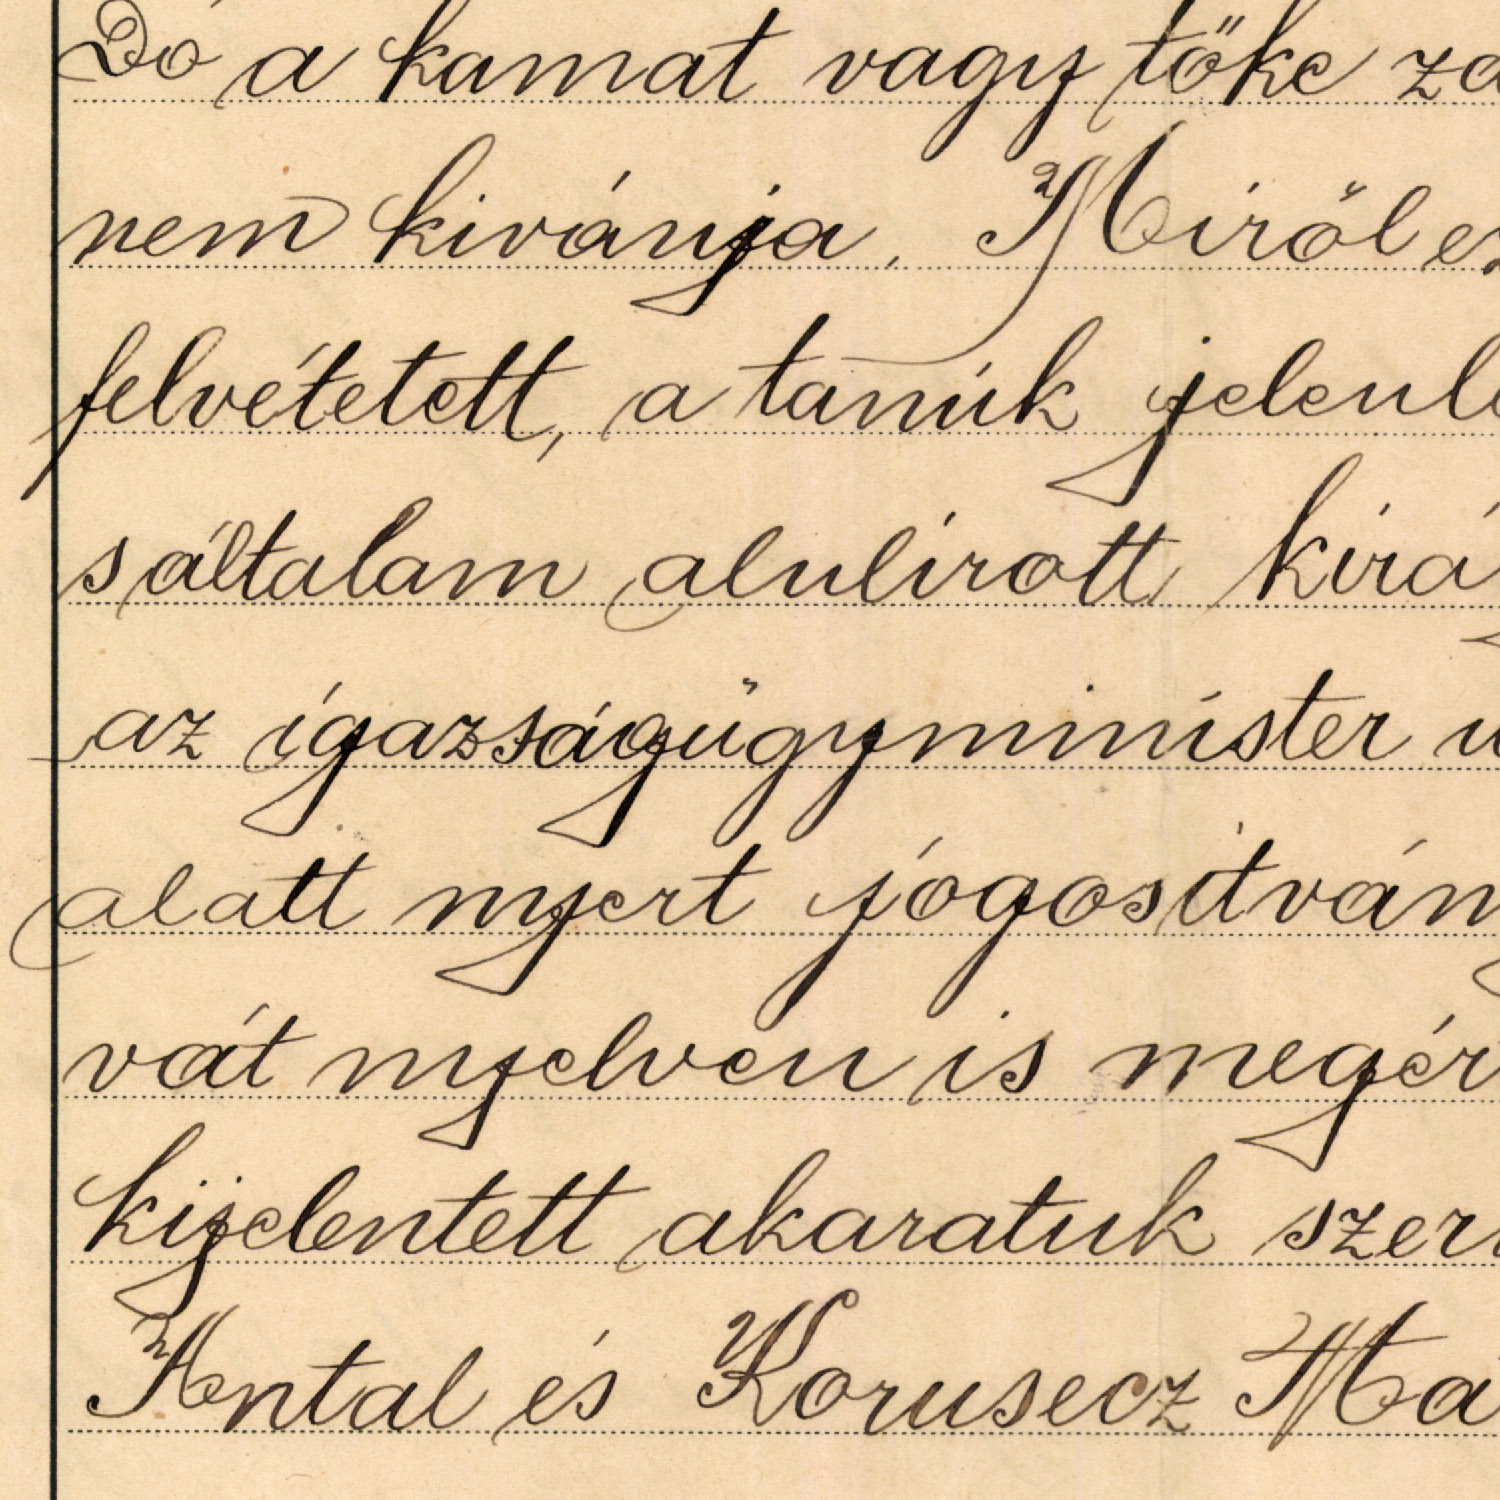 Dó a kamat vagy tőke za
nem kivánja. Miről ez
felvétetett, a tanúk jelenlé
s általam alulirott kirá
az igazságügyminister u
alatt nyert jógosítván
vát nyelven is megér
kijelentett akaratuk szeri
Antal és Korusecz Má